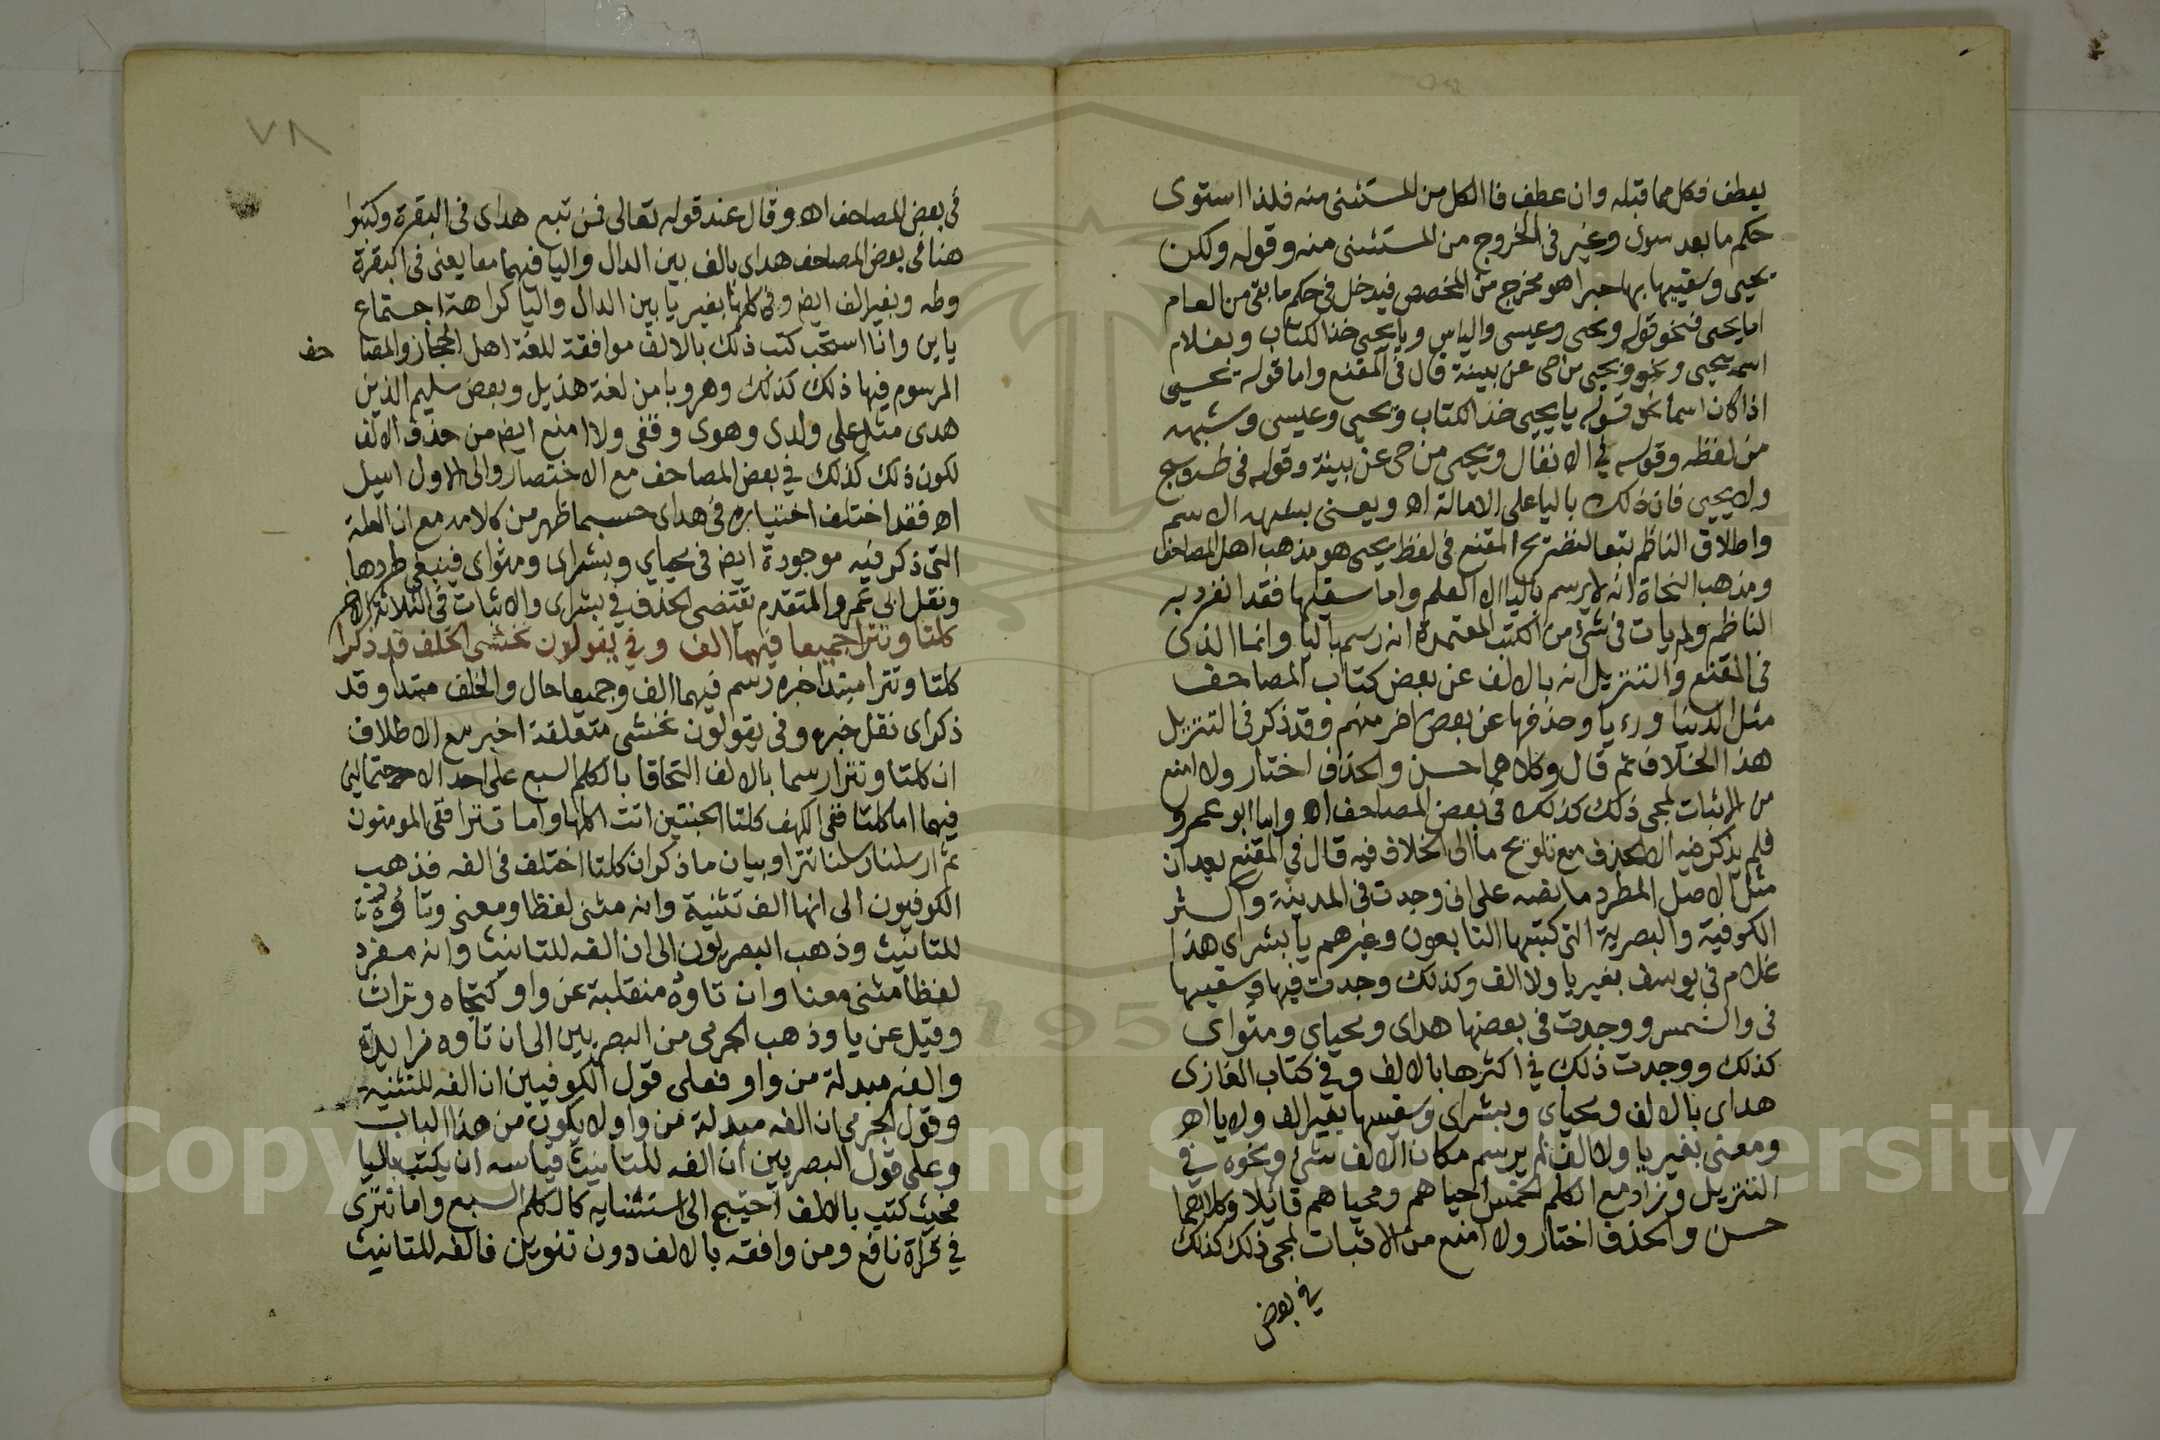 يعطف فكل مما قبله وان عطف فا الكل من المستثنى منه فلذا استوى
حكم ما بعد سوى وغير فى الخروج من المستثنى منه وقوله ولكن
يحيى وسقيها بها حبرا هو مخرج من المخصص فيدخل فى حكم ما بقى من العام
اما يحيى فنحو قوله ويحيى وعيسى والياس ويا يحيى خذ الكتاب وبغلام
اسمه يحيى ونحو ويحيى من حى عن بينة قال فى المقنع واما قوله يحيى
اذا كان اسما نحو قوله يا يحيى خذ الكتاب ويحيى وعيسى وشبهه
من لفظه وقوله في الانفال ويحيى من حى عن بينة وقوله فى طه وسبح
ولا يحيى فان ذلك باليا على الامالة اه ويعنى بشبهه الاسم
واطلاق الناظم تبعا لتصريح المقنع فى لفظ يحيى هو مذهب اهل المصاحف
ومذهب النحاة انه لا يرسم باليا الا العلم واما سقيها فقد انفرد به
الناظم ولم يات فى شئ من الكتب المعتمدة انه رسم باليا وانما الذى
فى المقنع والتنزيل انه بالالف عن بعض كتاب المصاحف
مثل الدنيا ورءيا وحذفها عن بعض اخر منهم وقد ذكر فى التنزيل
هذا الخلاف ثم قال وكلاهما حسن والحذف اختار ولا امنع
من الاثبات لمجى ذلك كذلك فى بعض المصاحف اه واما ابو عمرو
فلم يذكر فيه الا الحذف مع تلويح ما الى الخلاف فيه قال في المقنع بعد ان
مثل الاصل المطرد ما نصه على انى وجدت فى المدينة واكثر
الكوفية والبصرية التى كتبها التابعون وغيرهم يا بشراى هذا
غلام فى يوسف بغير يا ولا الف وكذلك وجدت فيها وسقيها
فى والشمس ووجدت فى بعضها هداى ومحياي ومثواى
كذلك ووجدت ذلك في اكثرها بالالف وفي كتاب الغازى
هداى بالالف ومحياي وبشراى وسقيها بغير الف ولا يا اه
ومعنى بغير يا ولا الف لم يرسم مكان الالف شئ ونحوه في
التنزيل وزاد مع الكلم الخمس احياهم ومحياهم قائلا وكلاهما
حسن والحذف اختار ولا امنع من الاثبات لمجى ذلك كذلك
في بعض
٧٨
فى بعض المصاحف اه وقال عند قوله تعالى فمن تبع هداى فى البقرة وكتبوا
هنا فى بعض المصاحف هداى بالف بين الدال واليا فيهما معا يعنى فى البقرة
وطه وبغير الف ايض وفى كلها بغير يا بين الدال واليا كراهة اجتماع
ياين وانا استحب كتب ذلك بالالف موافقة للغة اهل الحجاز والمصا
حف
المرسوم فيها ذلك كذلك وهروبا من لغة هذيل وبعض سليم الذين
هدى مثل على ولدى وهوى وقفى ولا امنع ايض من حذف الالف
لكون ذلك كذلك في بعض المصاحف مع الاختصار والى الاول اميل
اه فقد اختلف اختياره فى هداى حسبما ظهر من كلامه مع ان العلة
التى ذكر فيه موجودة ايض فى محياي وبشراى ومثواى فينبغى طردها
ونقل ابى عمرو المتقدم يقتضى الحذف في بشراى والاثبات فى الثلاثة الاخر
كلتا وتترا جميعا فيهما الف وفي يقولون نخشى الخلف قد ذكرا
كلتا وتترا مبتدا خبره رسم فيهما الف وجميعا حال والخلف مبتدا وقد
ذكراى نقل خبره وفى يقولون نخشى متعلقة اخبر مع الاطلاق
ان كلتا وتترا رسما بالالف التحاقا بالكلم السبع على احد الاحتمالين
فيهما اما كلتا ففى الكهف كلتا الجنتين اتت اكلها واما تترا ففى المومنون
ثم ارسلنا رسلنا تترا وبيان ما ذكر ان كلتا اختلف فى الفه فذهب
الكوفيون الى انها الف تثنية وانه مثنى لفظا ومعنى وتاؤه
للتانيث وذهب البصريون الى ان الفه للتانيث وانه مفرد
لفظا مثنى معنا وان تاوه منقلبة عن واو كتجاه وتراث
وقيل عن يا وذهب الجرمى من البصريين الى ان تاوه زايدة
والفه مبدلة من واو فعلى قول الكوفيين ان الفه للتثنية
وقول الجرمى ان الفه مبدلة من واو لا يكون من هذا الباب
وعلى قول البصريين ان الفه للتانيث قياسه ان يكتب باليا
فحيث كتب بالالف احتيج الى استثنايه كالكلم السبع واما تترى
في قراة نافع ومن وافقه بالالف دون تنوين فالفه للتانيث